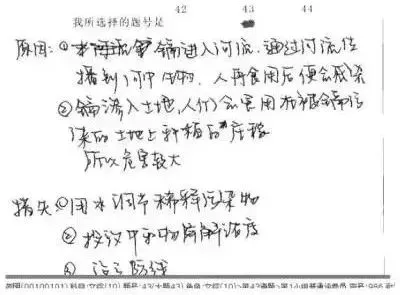 42 43 44
我所选择的题号是
原因:①镉进入河流,通过河流传
播到河中生物,人再食用后便会感染
②镉渗入土地,人们会食用在被镉污
染的土地上种植的庄稼
所以危害较大
措失①用水调节稀释污染物
②投议中和物质解浓度
③ 设立防线